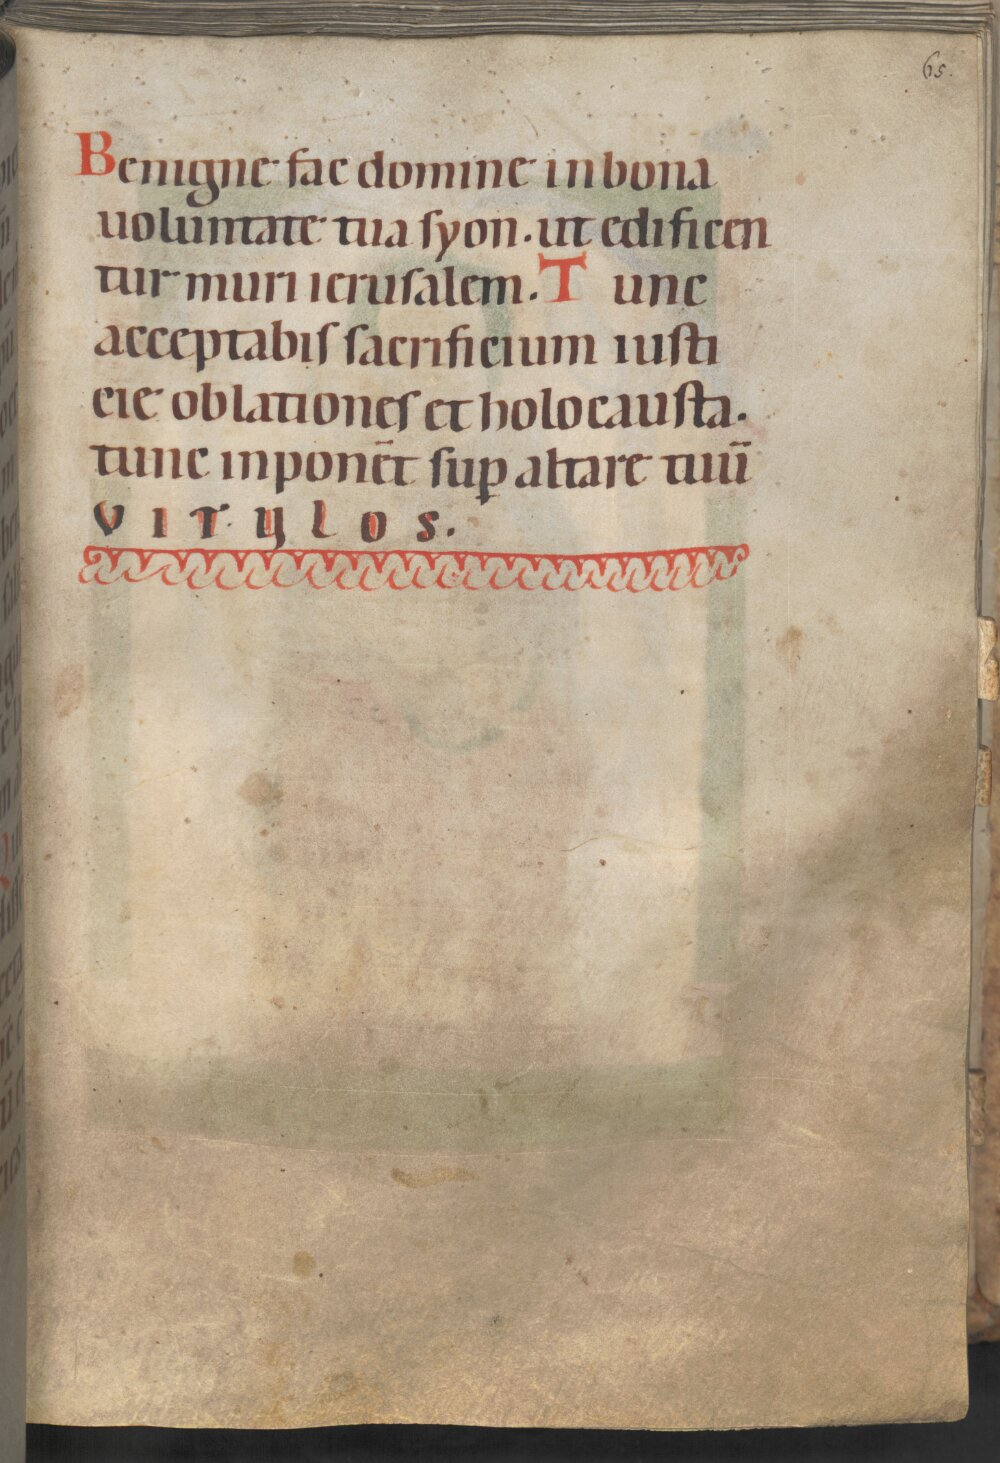 65.
Benigne fac domine in bona
uoluntate tua syon. ut edificen
tur muri ierusalem. Tunc
acceptabis sacrificium iusti
cie oblationes et holocausta.
tunc inponēt sup altare tuū
vitulos.